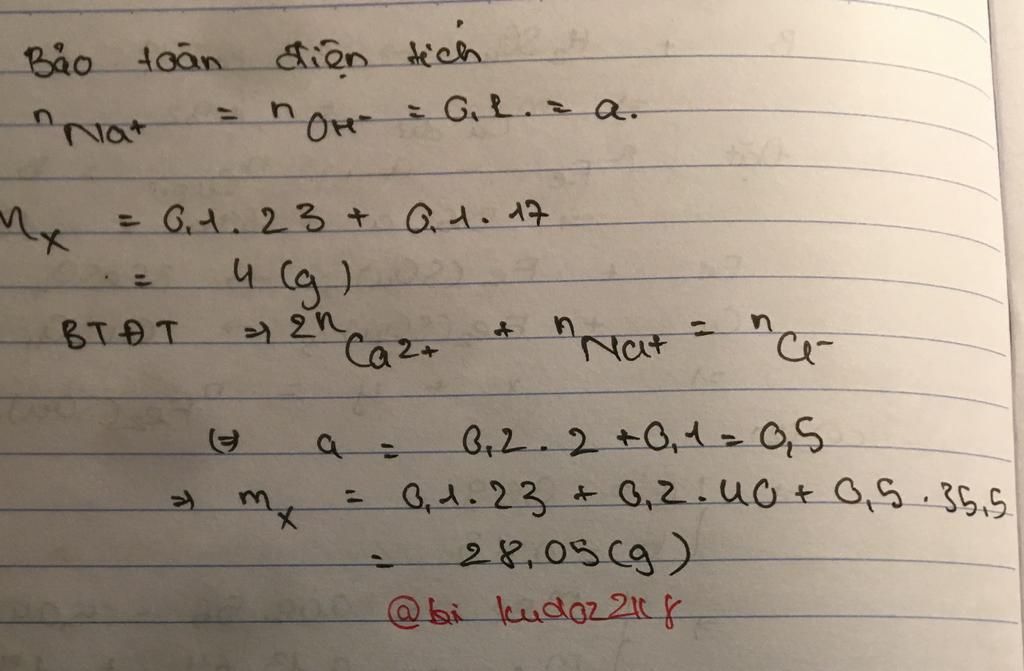 Bảo toàn điện tích
nNa+ = nOH- = 0,1. = a.
mX = 0,1.23 + 0,1.17
= 4 (g)
BTĐT ⇒ 2nCa2+ + nNa+ = nCl-
(⇒ a = 0,2.2 + 0,1 = 0,5
⇒ mX = 0,1.23 + 0,2.40 + 0,5.35,5
= 28,05 (g)
@bi kudoz2k8